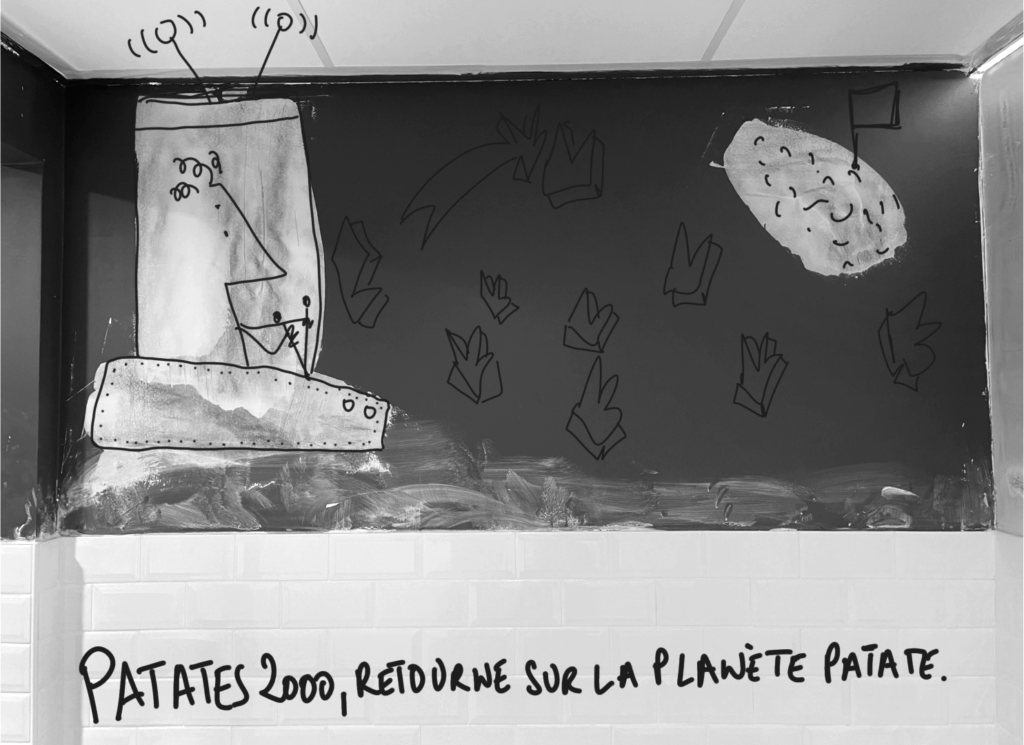 PATATES 2000, RETOURNE SUR LA PLANÈTE PATATE.